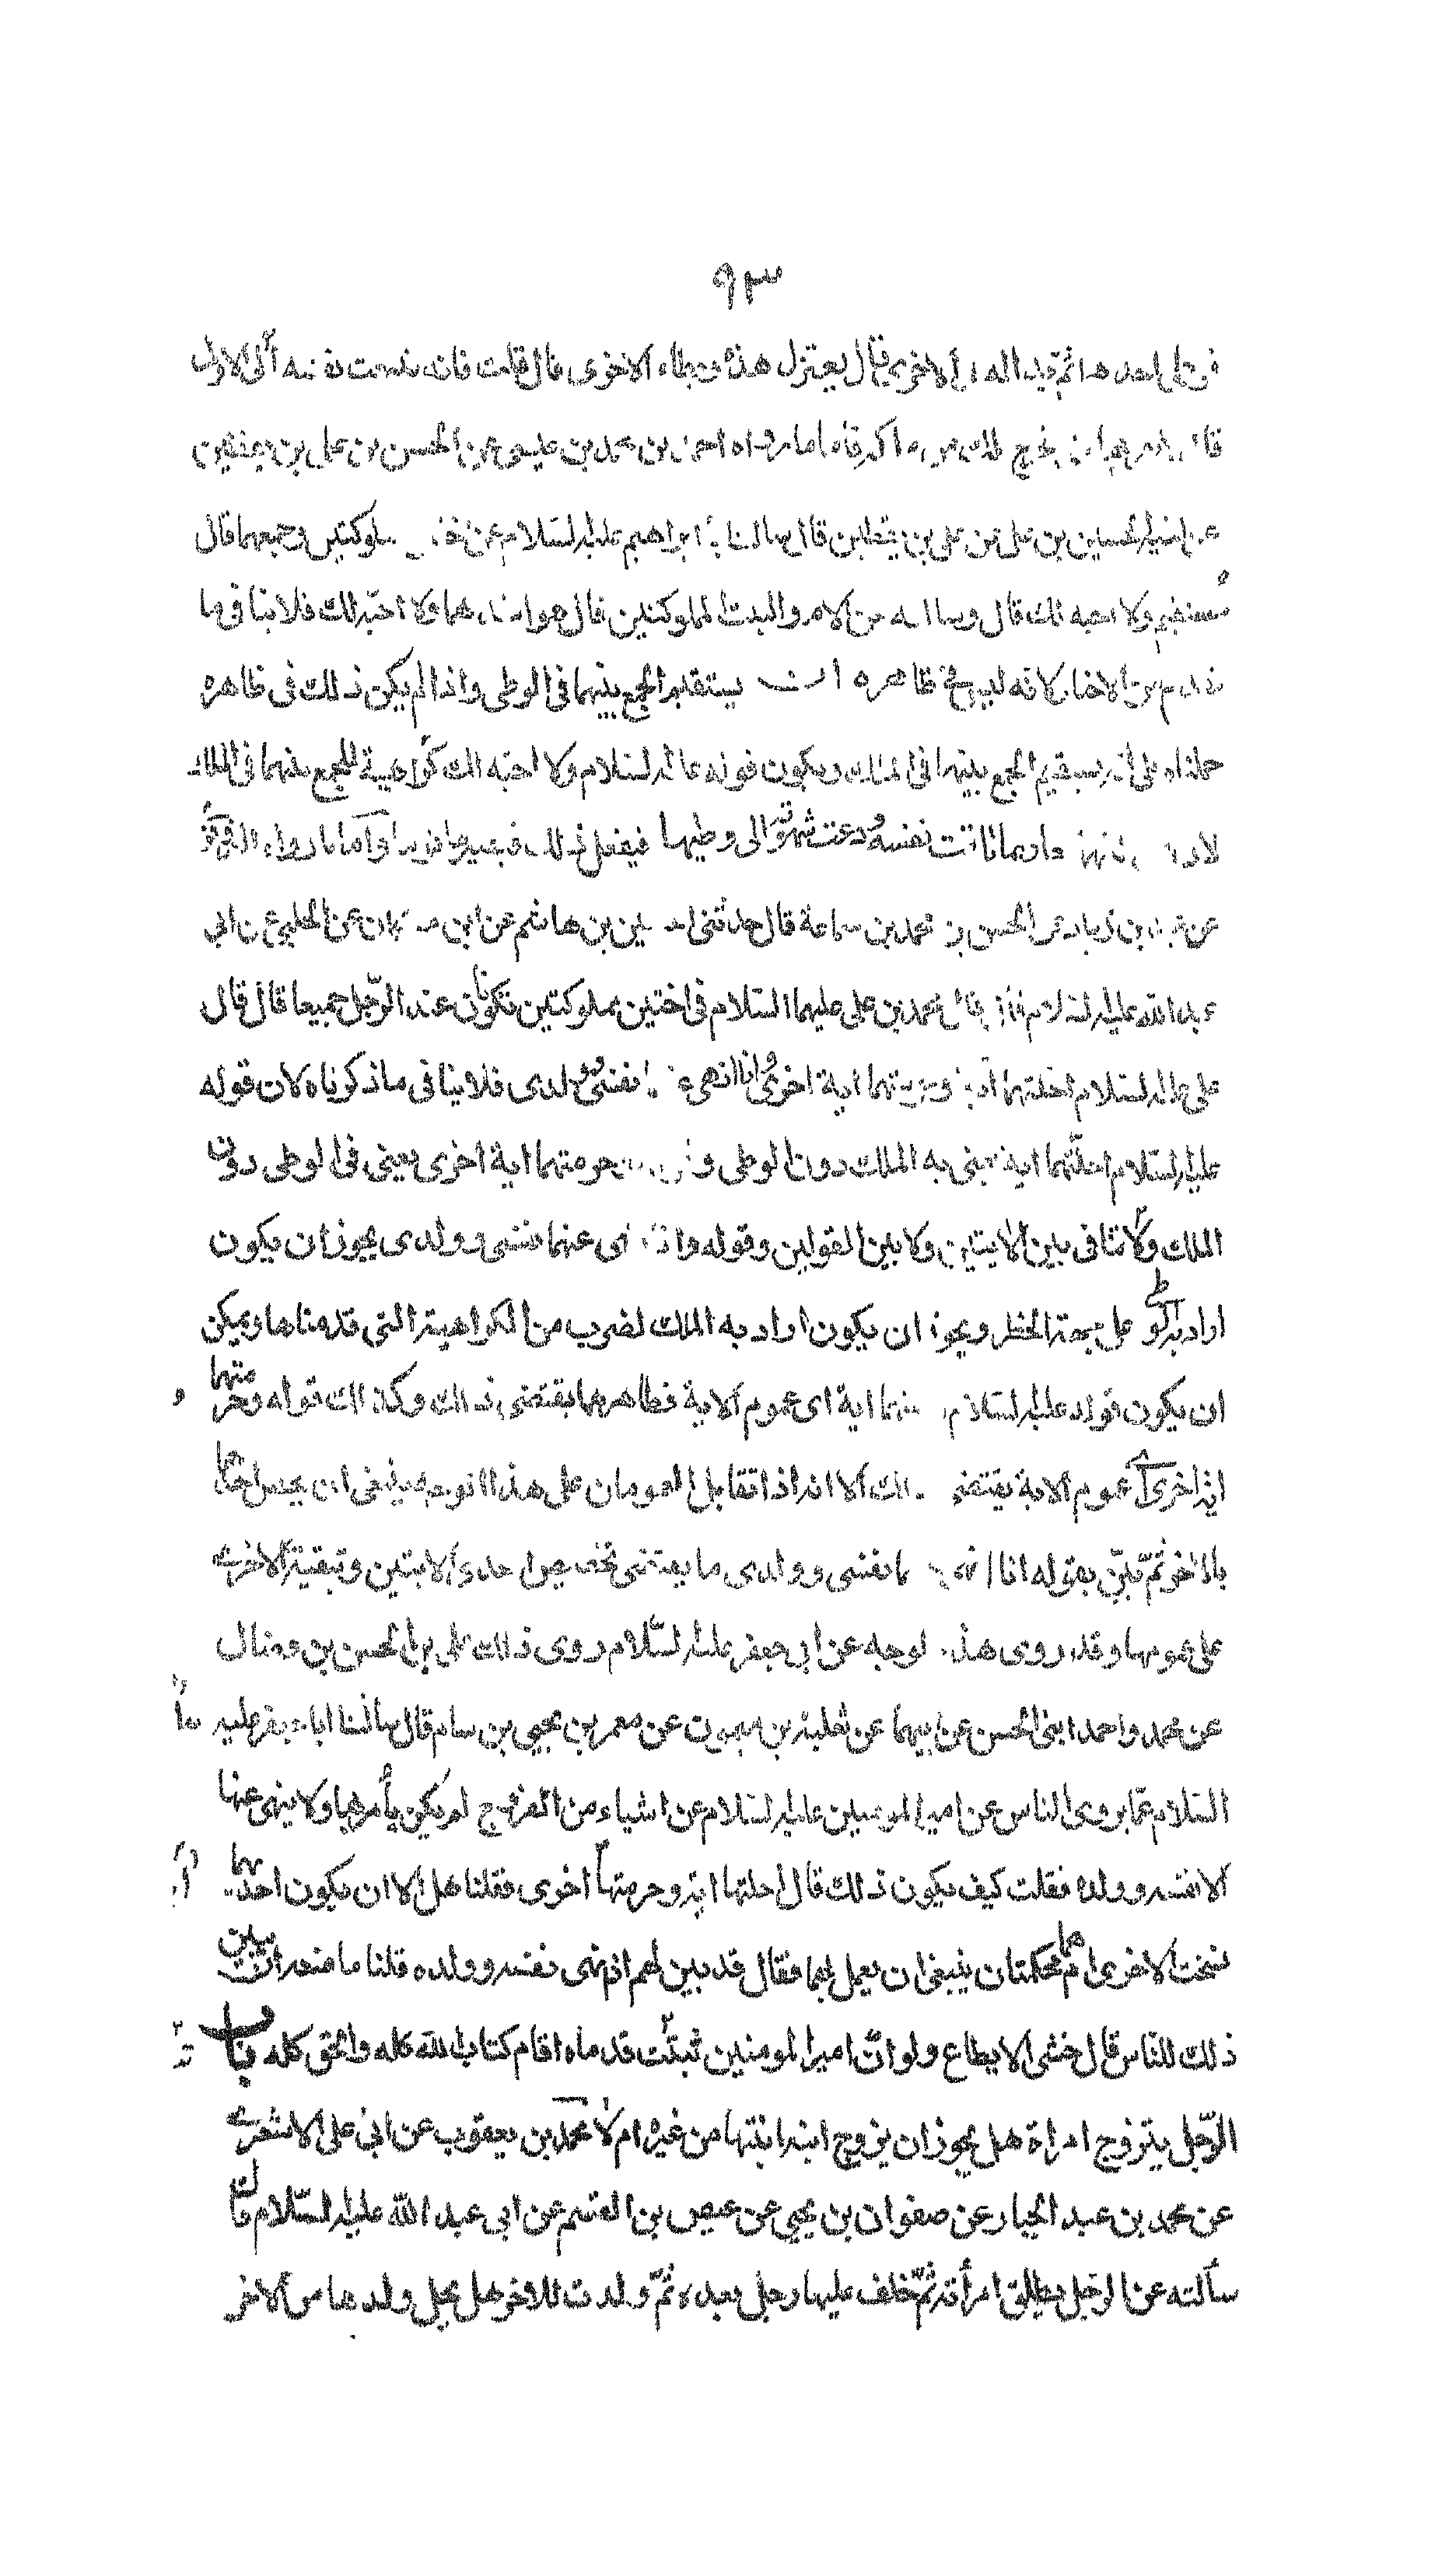 ٩٣
احديهما ثم بدا له في الاخرى قال يعتزل هذه ويطاء الاخرى قال قلت فانه تنبعث نفسه الى الاولى
قال ما ذكرناه اما ما رواه احمد بن محمد بن عيسى عن الحسن بن على بن يقطين
عن اخيه الحسين بن على عن على بن يقطين قال سالت ابا ابراهيم عليه السلام عن مملوكتين وجمعهما قال
مستقيم ولا احبه لك قال وسالته عن الام والبنت المملوكتين قال هو اشدهما ولا احبه لك فلا ينافى ما
قدم من الاخبار لانه ليس فى ظاهره انه يستقيم الجمع بينهما فى الوطى واذا لم يكن ذلك فى ظاهره
حملناه على انه يستقيم الجمع بينهما فى الملك ويكون قوله عليه السلام ولا احبه لك كراهية للجمع بينهما فى الملك
لانه ربما تاقت نفسه ودعت شهوته الى وطيها فيفعل ذلك فاما ما رواه البزوفرى
عن بن زياد عن الحسن بن محمد بن سماعة قال حدثنى الحسين بن هاشم عن ابن عن الحلبى عن ابى
عبد الله عليه السلام قال قال محمد بن على عليهما السلام فى اختين مملوكتين تكونان عند الرجل جميعا قال قال
على عليه السلام احلتهما اية وحرمتهما اية اخرى وانا انهى عنهما نفسى وولدى فلا ينافى ما ذكرناه لان قوله
عليه السلام احلتهما اية يعنى به الملك دون الوطى وقوله حرمتهما اية اخرى يعنى فى الوطى دون
الملك ولا تنافى بين الايتين ولا بين القولين وقوله وانا انهى عنهما نفسى وولدى يجوز ان يكون
اراد به الوطى على جهة الحظر ويجوز ان يكون اراد به الملك لضرب من الكراهية التى قدمناها ويمكن
ان يكون قوله عليه السلام احلتهما اية اى عموم الاية فظاهرهما يقتضى ذلك وكذلك قوله وحرمتهما
اية اخرى اى عموم الاية يقتضى ذلك الا انه اذا تقابل العمومان على هذا الوجه ينبغى ان يخص احدهما
بالاخر ثم بين بقوله انا انهى عنهما نفسى وولدى ما يقتضى تخصيص احدى الايتين وتبقية الاخرى
على عمومها وقد روى هذا الوجه عن ابى جعفر عليه السلام روى ذلك على بن الحسن بن فضال
عن محمد واحمد ابنى الحسن عن ابيهما عن ثعلبة بن ميمون عن معمر بن يحيى بن سام قال سالنا ابا جعفر عليه
السلام عما يروى الناس عن امير المومنين عليه السلام عن اشياء من الفروج لم يكن يأمر بها ولا ينهى عنها
الا نفسه وولده فقلت كيف يكون ذلك قال احلتها اية وحرمتها اخرى فقلنا هل الا ان يكون احديهما
نسخت الاخرى ام هما محكمتان ينبغى ان يعمل بهما فقال قد بين لهم اذ نهى نفسه وولده قلنا ما منعه ان يبين
ذلك للناس قال خشى الا يطاع ولو ان امير المومنين ثبتت قدماه اقام كتاب الله كله والحق كله باب
الرجل يتزوج امراة هل يجوز ان يزوج ابنه ابنتها من غيره ام لا محمد بن يعقوب عن ابى على الاشعرى
عن محمد بن عبد الجبار عن صفوان بن يحيى عن عيص بن القسم عن ابى عبد الله عليه السلام قال
سألته عن الرجل يطلق امرأته ثم خلف عليها رجل بعده ثم ولدت للاخر هل يحل ولدها من الاخر